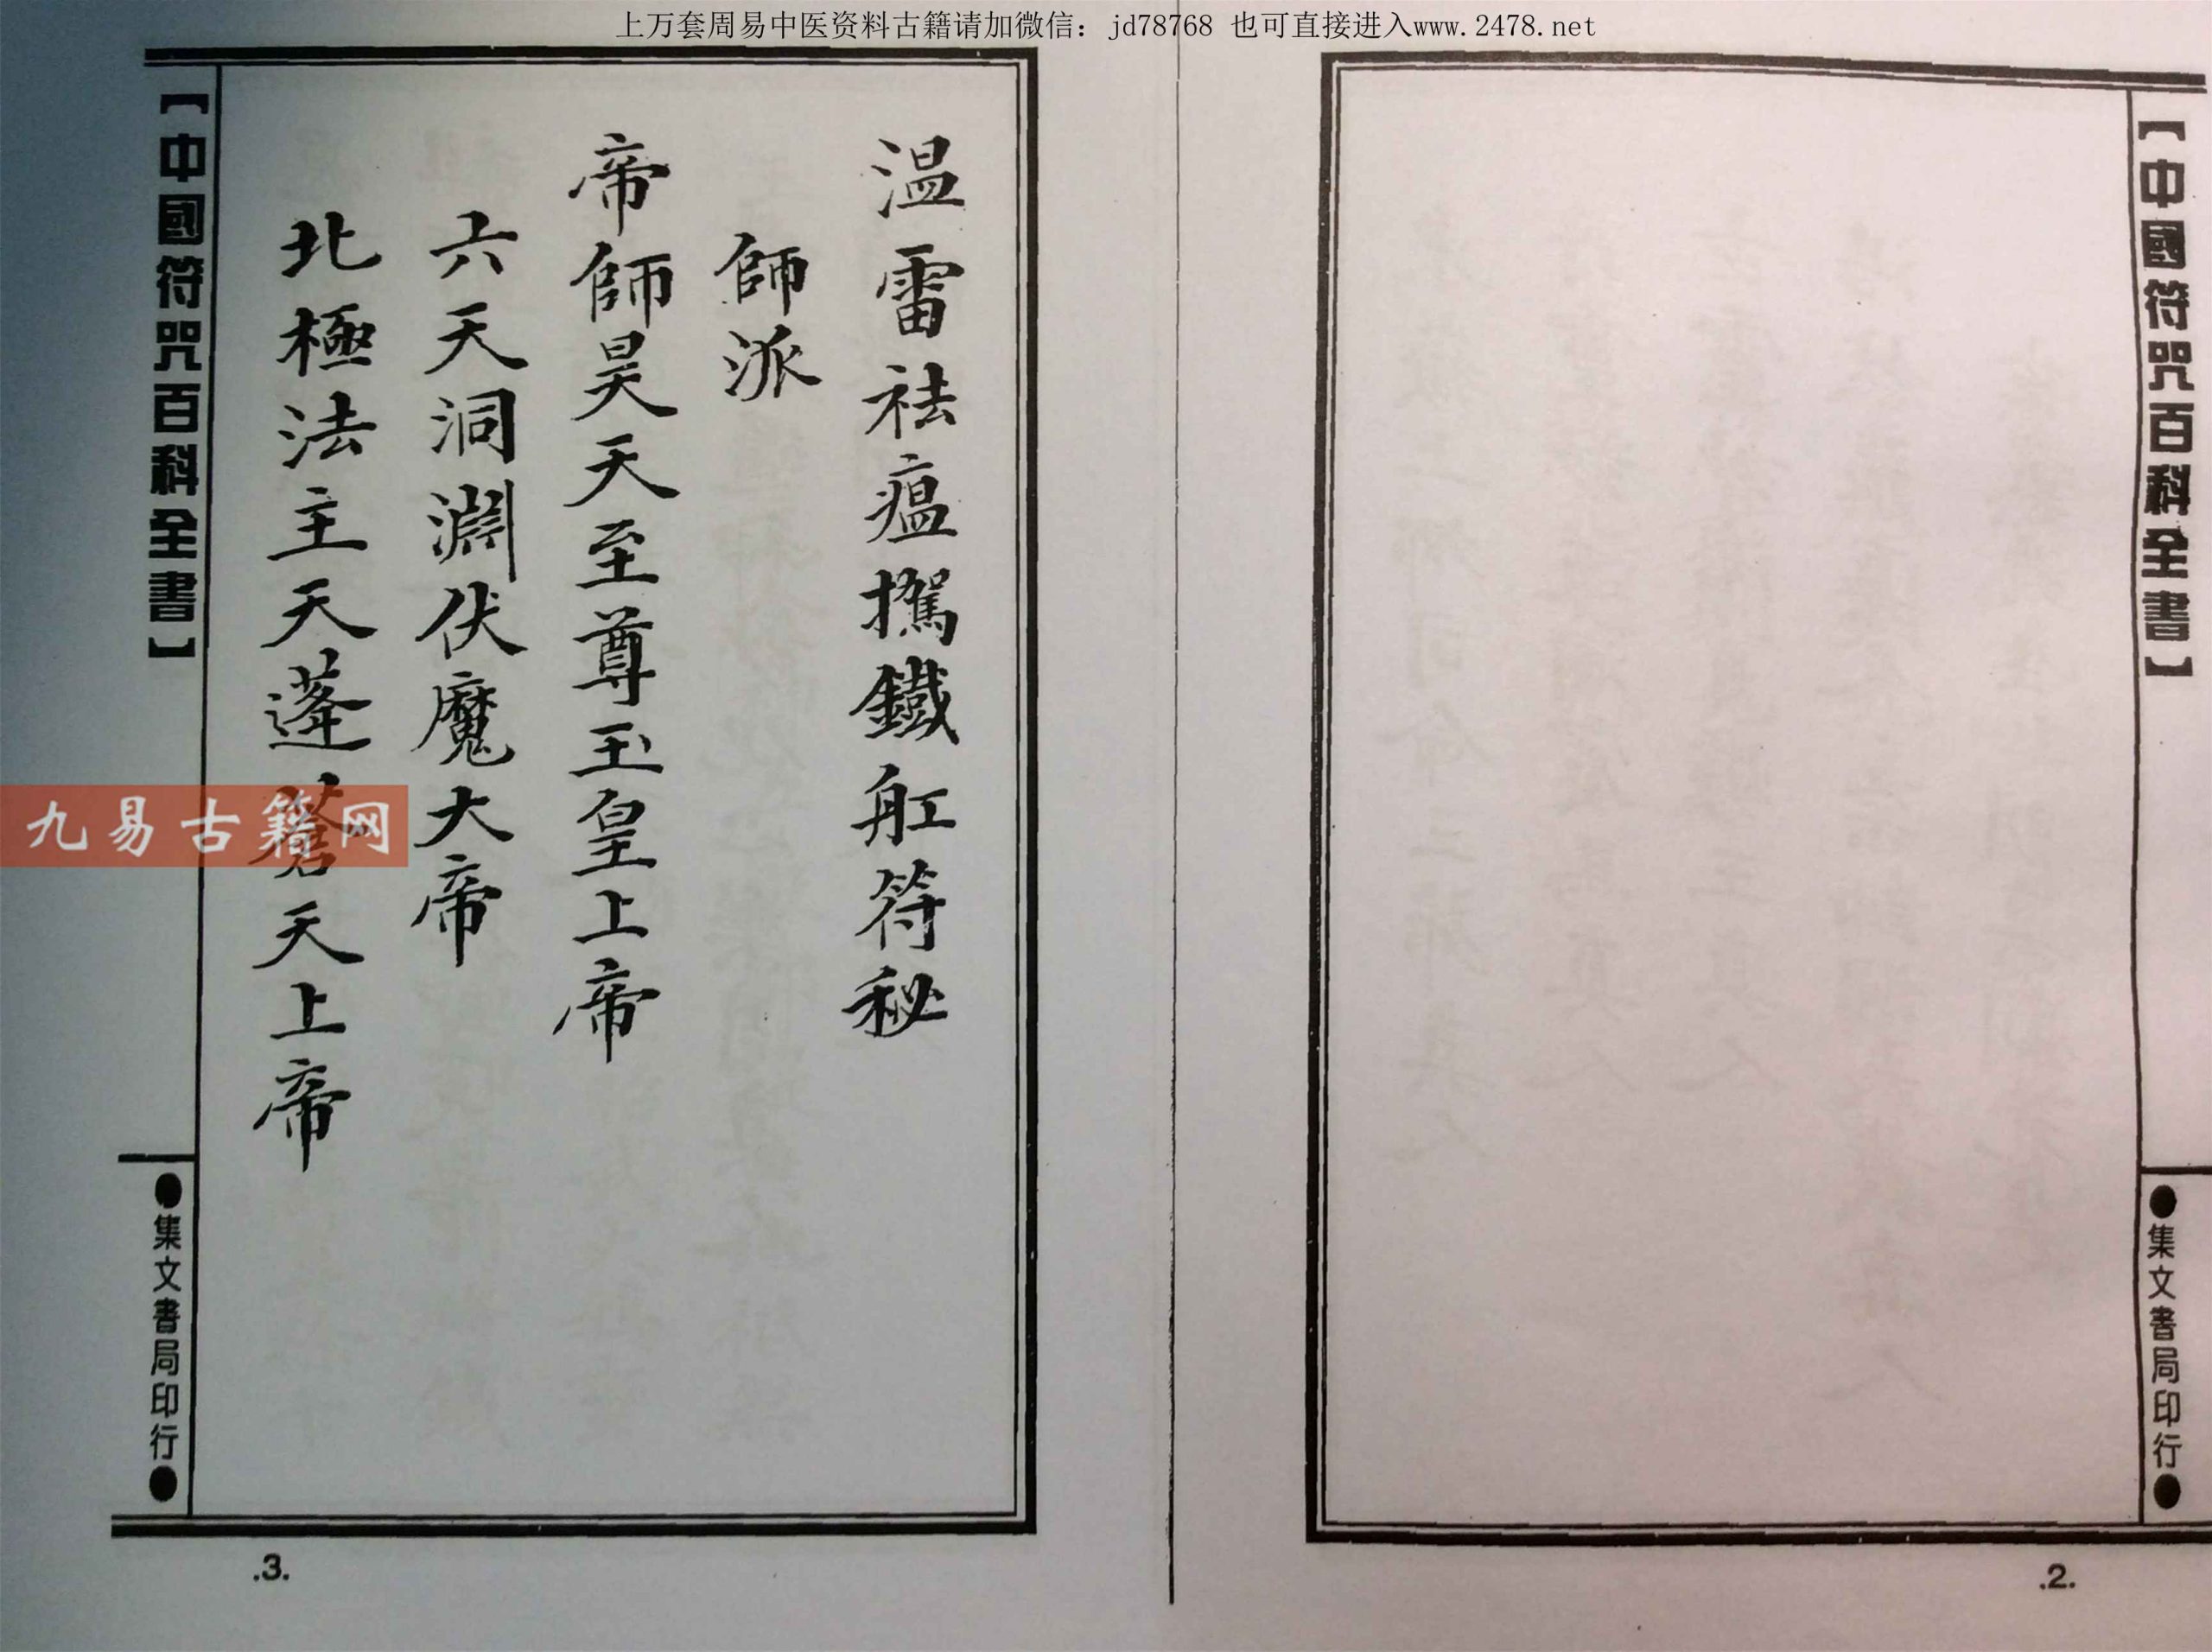 上万套周易中医资料古籍请加微信：jd78768 也可直接进入www.2478.net
【中國符咒百科全書】
●集文書局印行●
.2.
温雷祛瘟撝鐵舡符秘
師派
帝師昊天至尊玉皇上帝
六天洞淵伏魔大帝
北極法主天蓬蒼天上帝
【中國符咒百科全書】
●集文書局印行●
.3.
九易古籍网